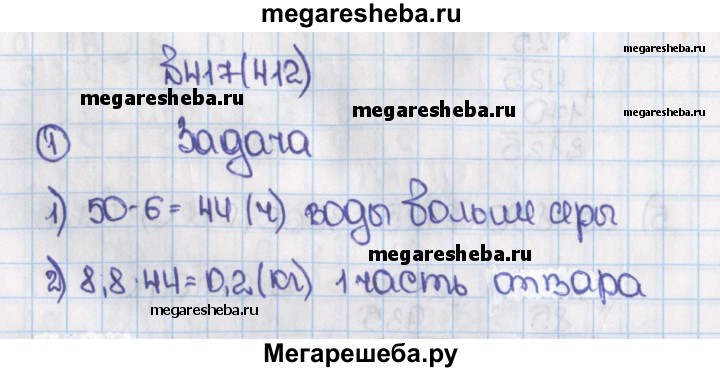 megaresheba.ru
В417(412)
megaresheba.ru
megaresheba.ru
megaresheba.ru
① Задача
1) 50-6=44 (ч) воды больше серы
megaresheba.ru
2) 8,8:44=0,2(кг) 1 часть отвара
megaresheba.ru
Мегарешеба.ру